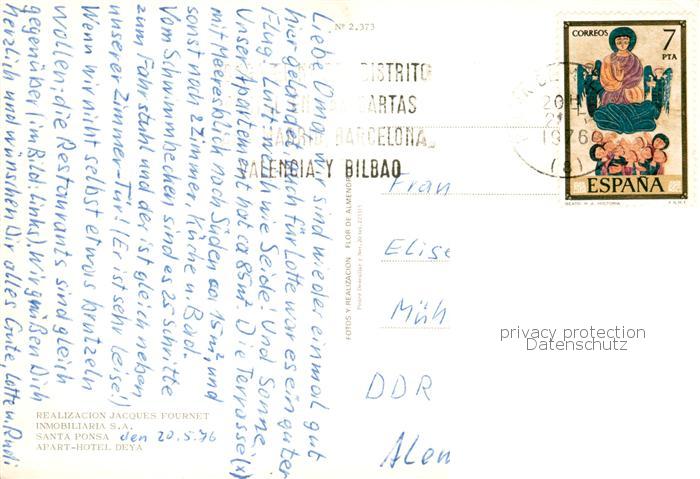 Nº 2.373
Liebe Omi! Wir sind wieder einmal gut
hier gelandet. Auch für Lotte war es ein guter
Flug. Luft ist wie Seide! Und Sonne.
Unser Apartement hat ca 85 m². Die Terrasse (x)
mit Meeresblick nach Süden ca 15 m², und
sonst noch 2 Zimmer, Küche u. Bad.
Vom Schwimmbecken sind es 25 Schritte
zum Fahrstuhl und der ist gleich neben
unserer Zimmer-Tür! (Er ist sehr leise!)
Wenn wir nicht selbst etwas brutzeln
wollen, die Restaurants sind gleich
gegenüber (im Bild: links). Wir grüßen Dich
herzlich und wünschen Dir alles Gute, Lotte u. Rudi
REALIZACION JACQUES FOURNET
INMOBILIARIA S.A.
SANTA PONSA den 20.5.76
APART-HOTEL DEYA
FOTOS Y REALIZACION FLOR DE ALMENDR
DISTRITO
CARTAS
MADRID, BARCELONA,
VALENCIA Y BILBAO
1976
(8)
CORREOS 7
PTA
ESPAÑA
BEATO M. A. HISTORIA F.N.M.T.
Frau
Elise
Müh
DDR
Alen
privacy protection
Datenschutz